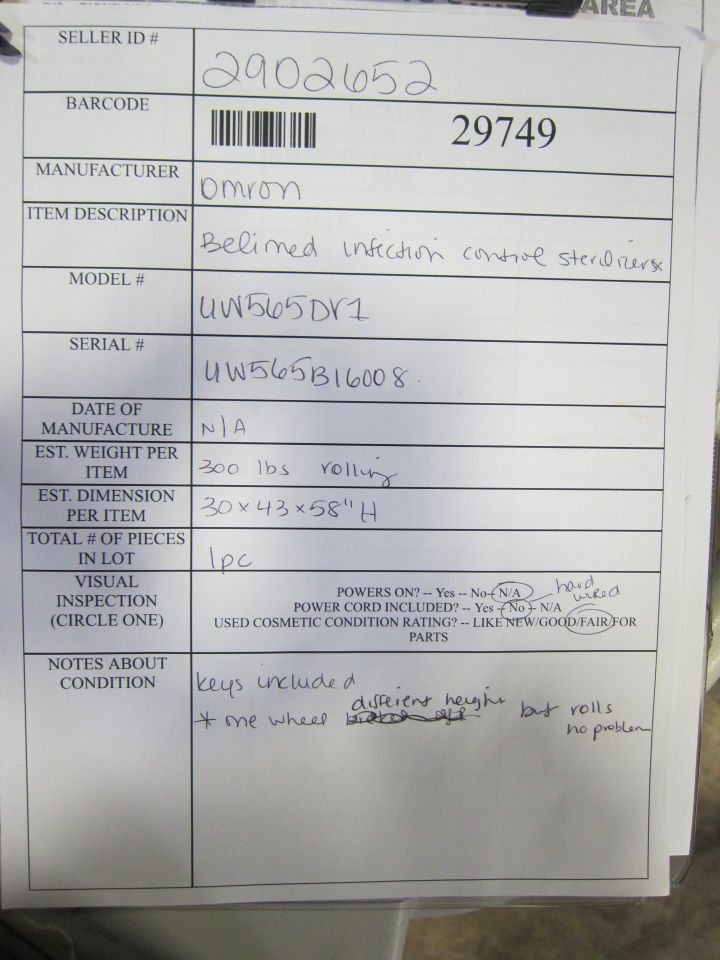 AREA
SELLER ID # 2902652
BARCODE 29749
MANUFACTURER omron
ITEM DESCRIPTION Belimed infection control sterilizers
MODEL # UW565DV1
SERIAL # UW565B16008
DATE OF
MANUFACTURE N/A
EST. WEIGHT PER
ITEM 300 lbs rolling
EST. DIMENSION
PER ITEM 30x43x58"H
TOTAL # OF PIECES
IN LOT 1pc
VISUAL
INSPECTION
(CIRCLE ONE)
POWERS ON? -- Yes -- No-- N/A
hard
wired
POWER CORD INCLUDED? -- Yes -- No -- N/A
USED COSMETIC CONDITION RATING? -- LIKE NEW/GOOD/FAIR/FOR
PARTS
NOTES ABOUT
CONDITION
keys included
* one wheel different height but rolls
no problem